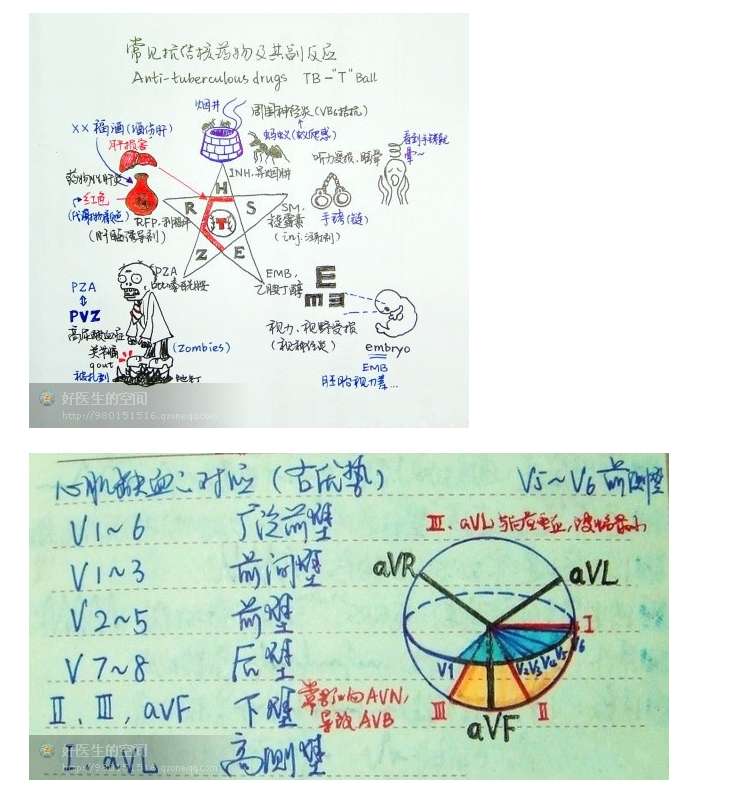 常见抗结核药物及其副反应
Anti-tuberculous drugs TB-"T" Ball
烟井
周围神经炎(VB6拮抗)
XX福酒(酒伤肝)
蚂蚁(蚁爬感)
看到手铐就
晕~
肝损害
听力受损、眩晕
药物性肝炎
INH,异烟肼
H
红色
R
S
SM,
链霉素
手铐(链)
(代谢物颜色)
RFP,利福平
T
(肝酶诱导剂)
(inj.注射剂)
Z
E
PZA
吡嗪酰胺
EMB,
乙胺丁醇
E
PZA
PVZ
高尿酸血症
类关痛
gout
(Zombies)
视力、视野受损
(视神经炎)
embryo
EMB
胚胎视力差...
被扎到
地钉
好医生的空间
http://980151516.qzone.qq.com
心肌缺血对应(古氏垫)
V5~V6 前侧壁
V1~6 广泛前壁
V1~3 前间壁
V2~5 前壁
V7~8 后壁
II、III、aVF 下壁
常影响AVN,
导致AVB
I、aVL 高侧壁
aVR
aVL
I
V1
V2 V3 V4 V5 V6
III
II
aVF
好医生的空间
http://980151516.qzone.qq.com